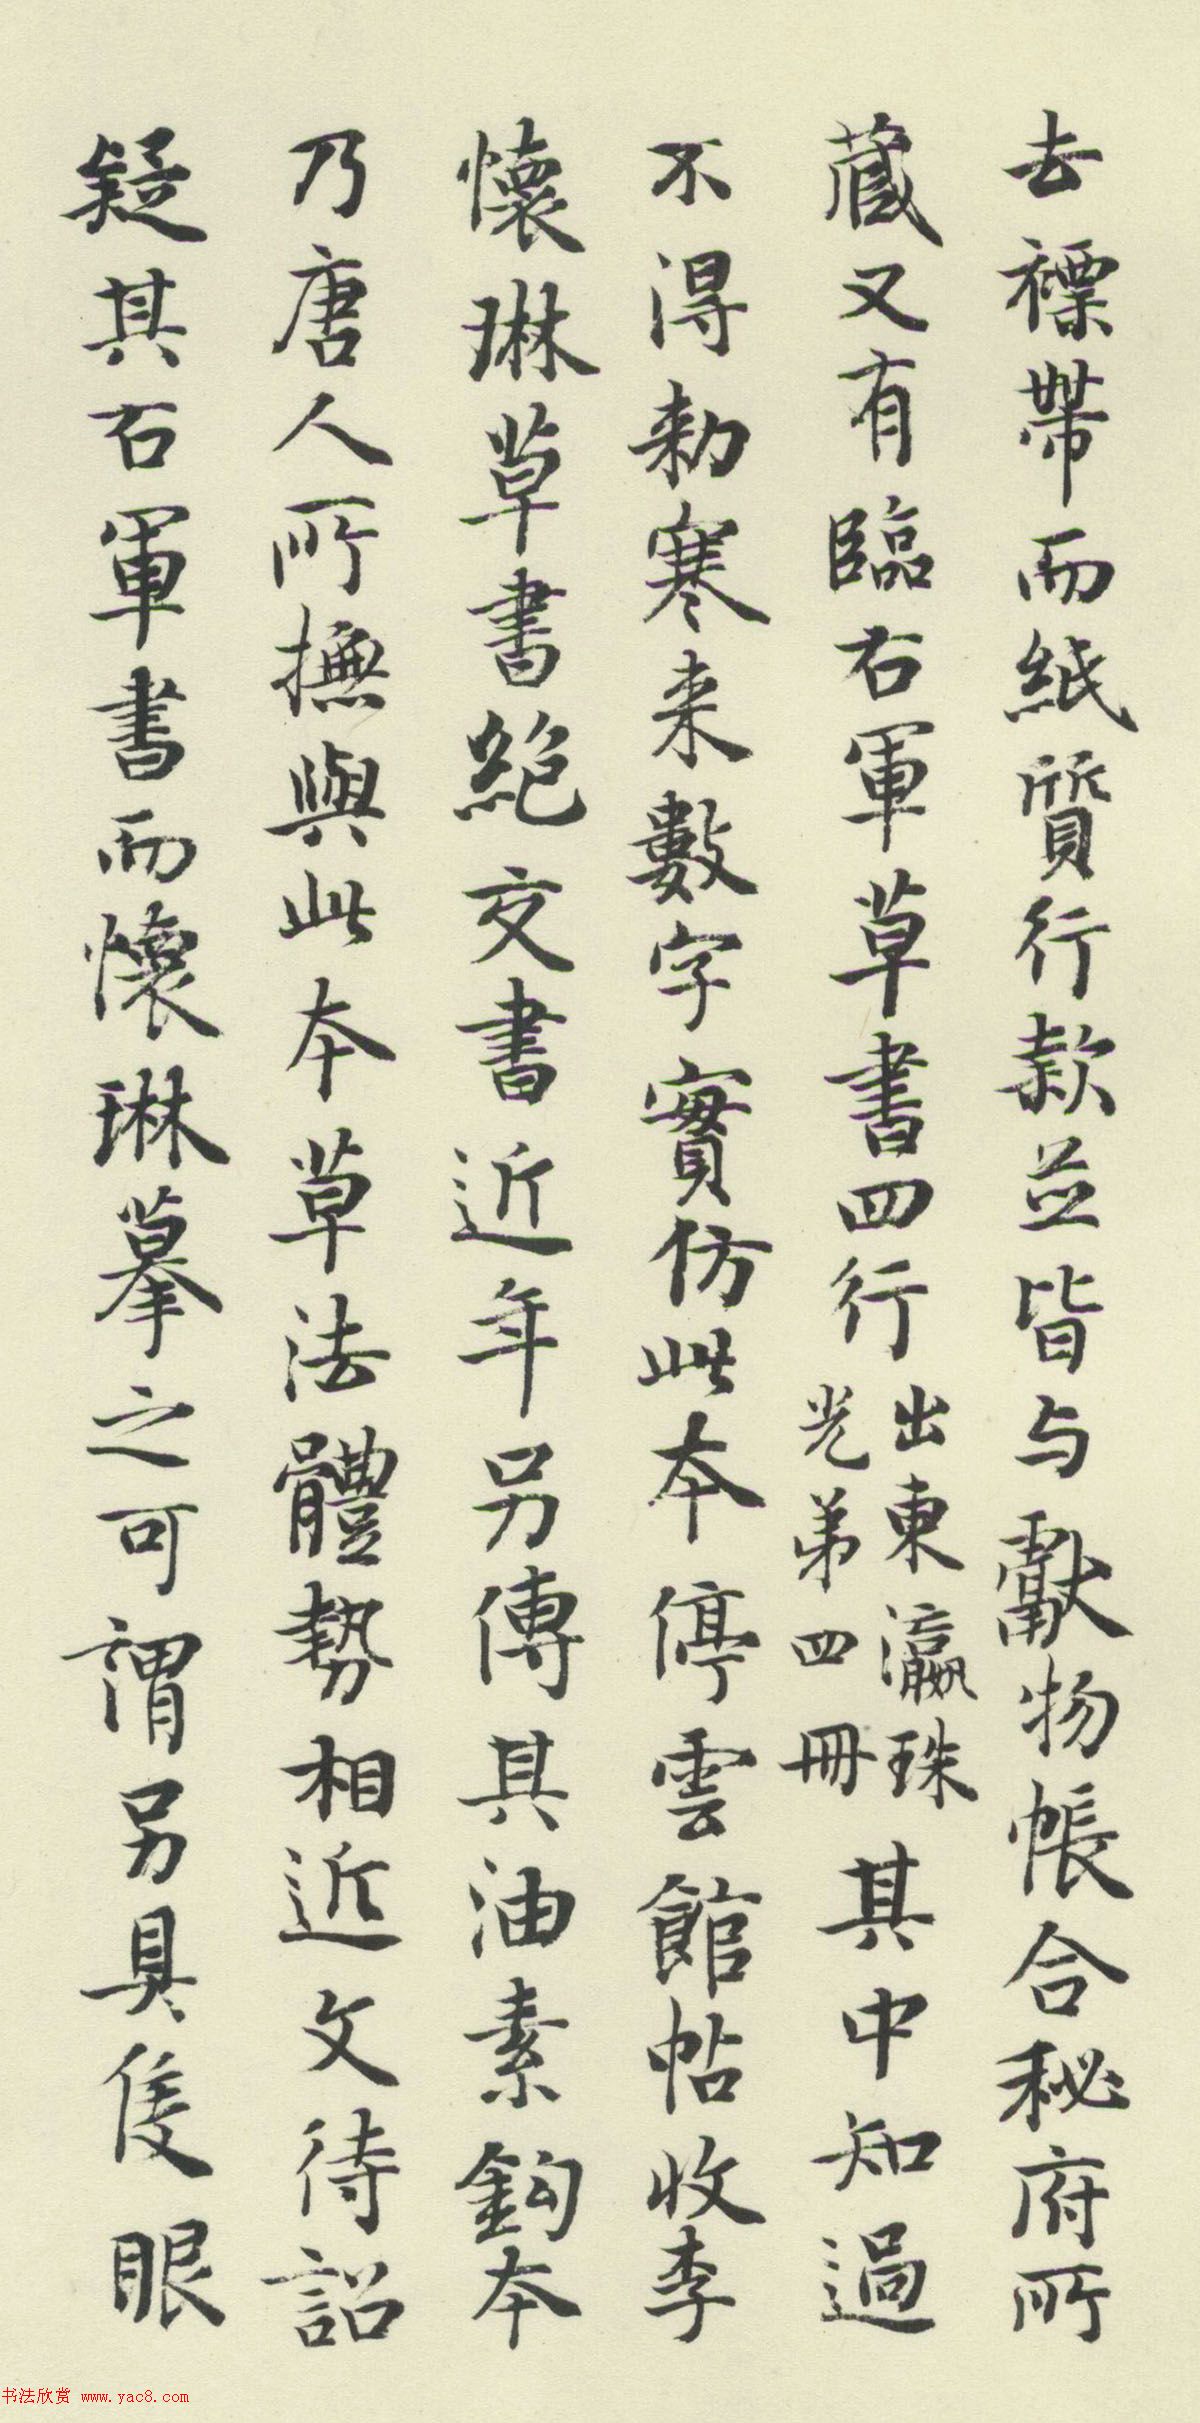 去褾帶而紙質行款並皆与獻物帳合秘府所
藏又有臨右軍草書四行出東瀛珠光弟四冊其中知過
不得勑寒来數字實仿此本停雲館帖收李
懷琳草書絕交書近年另傳其油素鈎本
乃唐人所撫與此本草法體勢相近文待詔
疑其右軍書而懷琳摹之可謂另具隻眼
书法欣赏 www.yac8.com